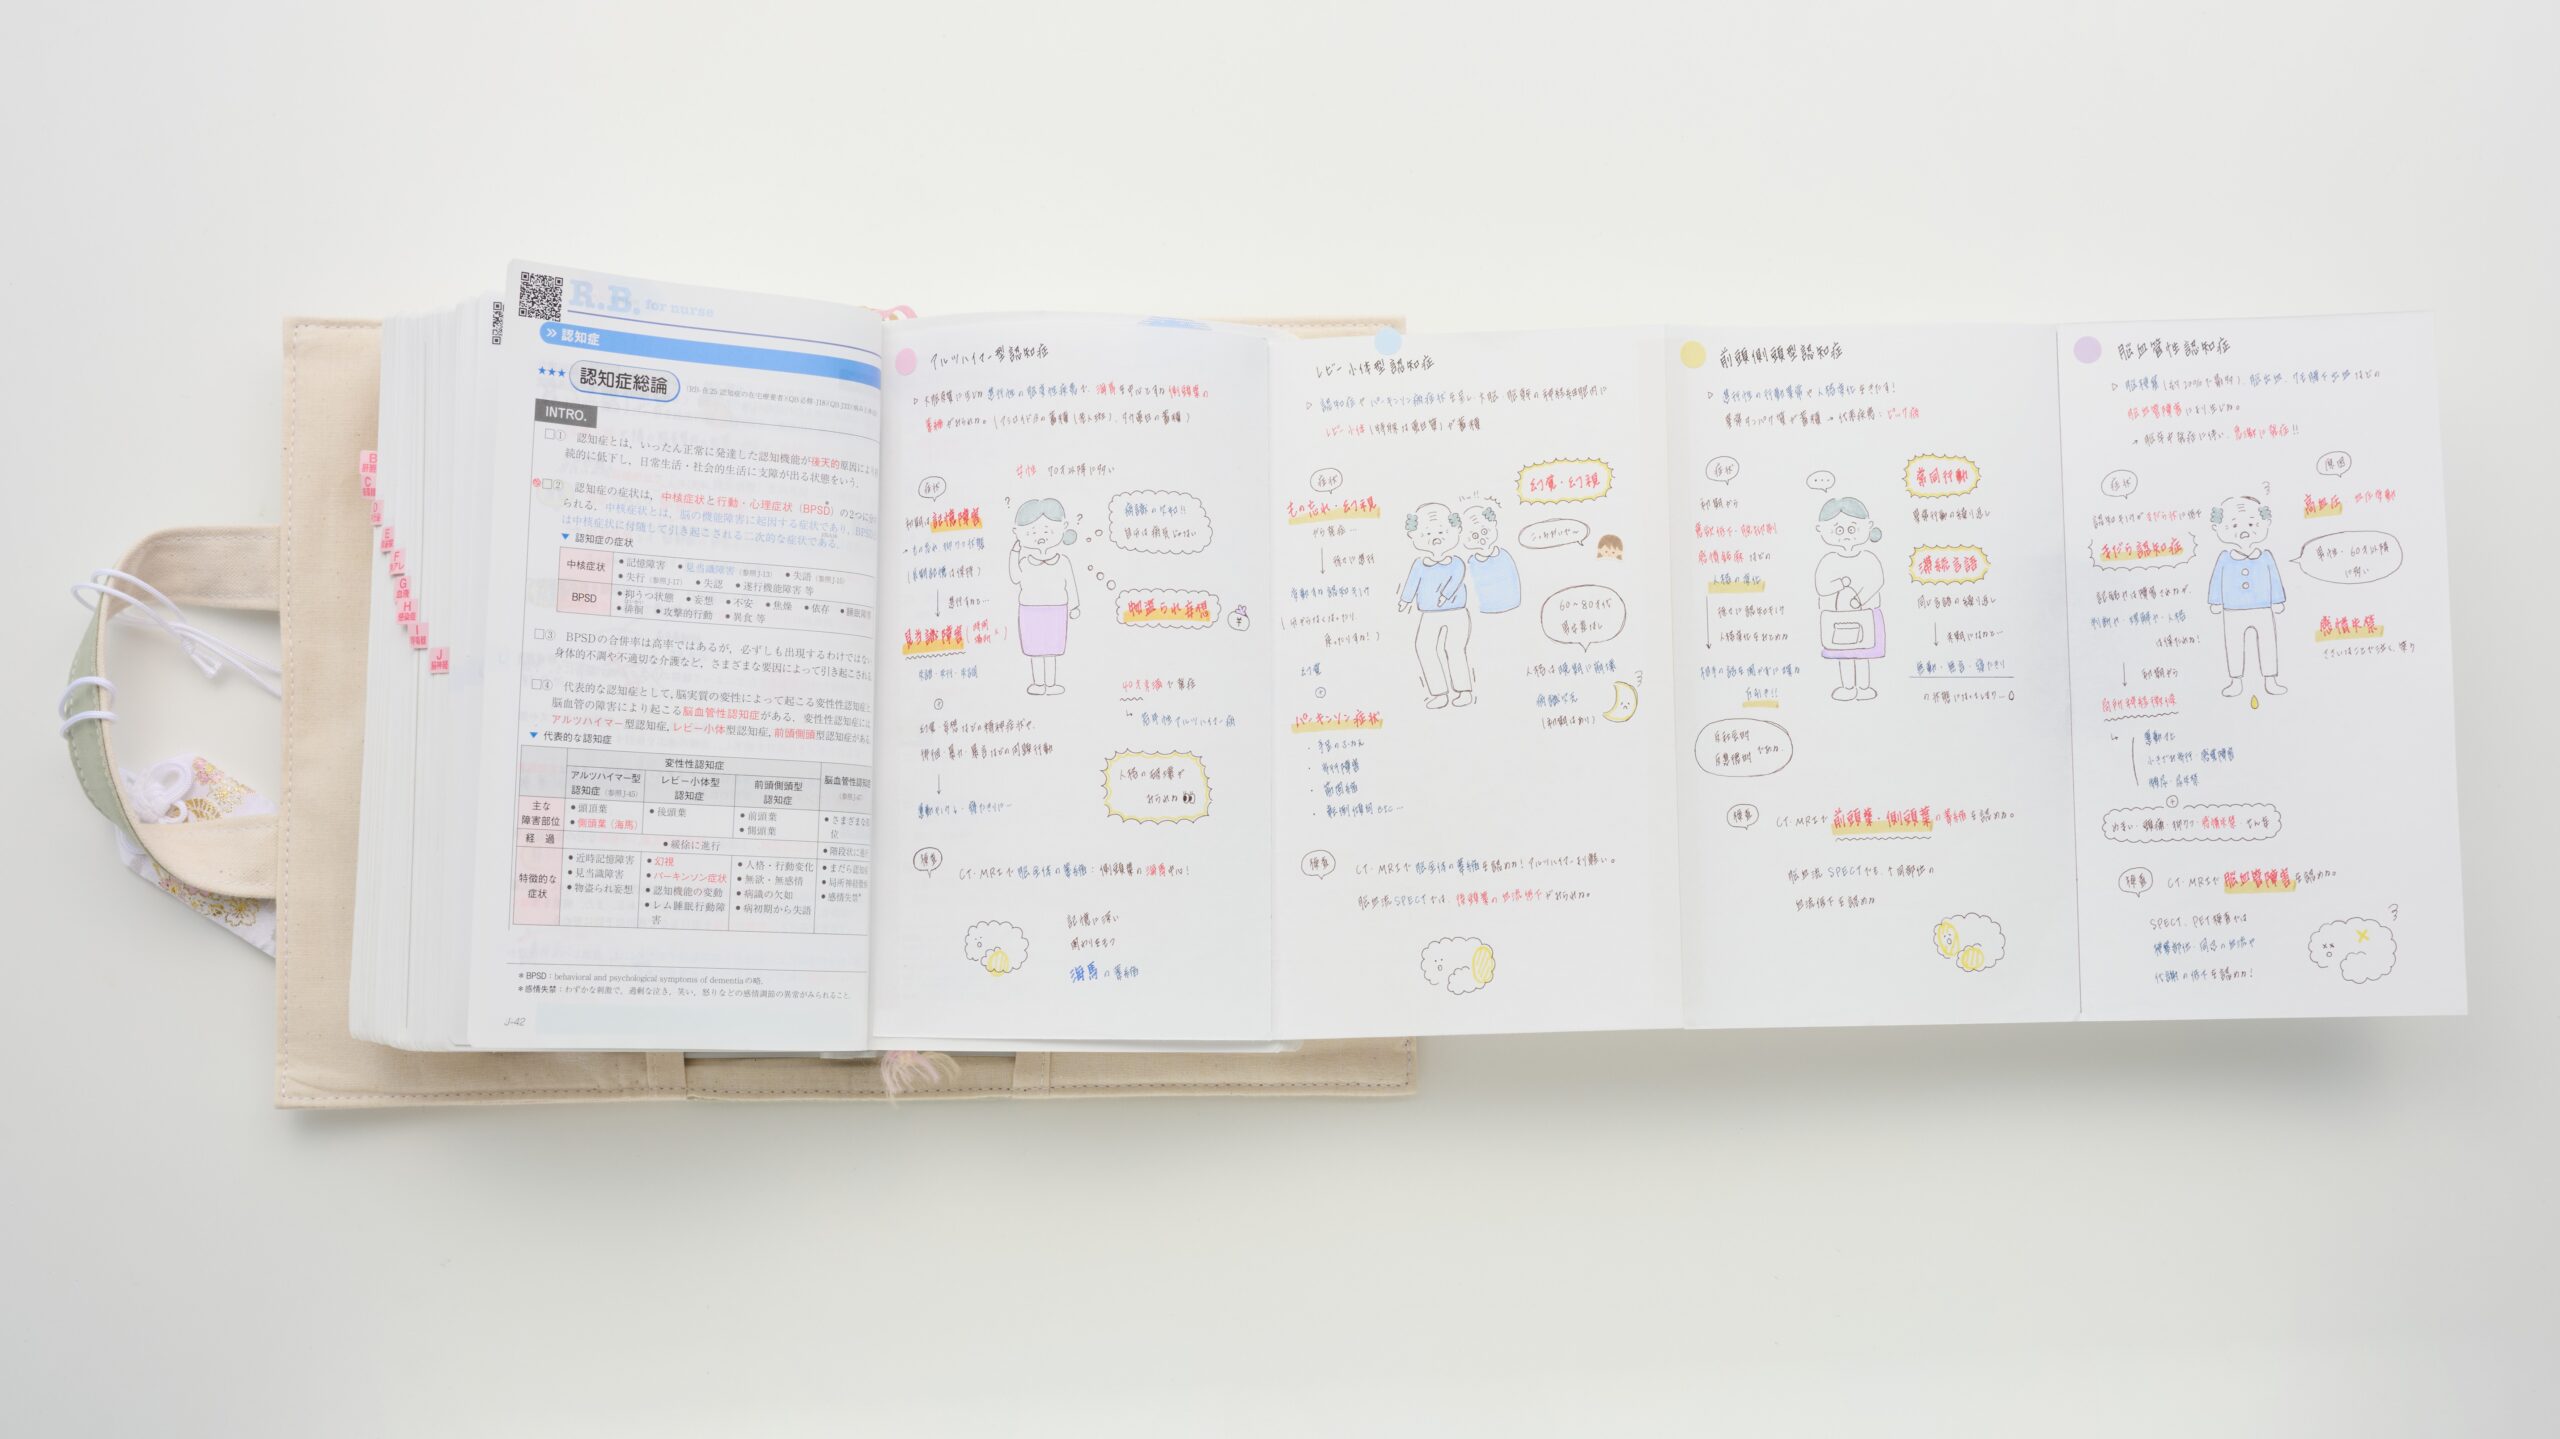 R.B. for nurse
認知症
認知症総論
INTRO.
① 認知症とは，いったん正常に発達した認知機能が後天的原因により
続的に低下し，日常生活・社会的生活に支障が出る状態をいう．
② 認知症の症状は，中核症状と行動・心理症状（BPSD）の2つに
られる．中核症状とは，脳の機能障害に起因する症状であり，BPSD
は中核症状に付随して引き起こされる二次的な症状である．
▼ 認知症の症状
中核症状
●記憶障害 ●見当識障害（参照J-13） ●失語（参照J-16）
●失行（参照J-17） ●失認 ●遂行機能障害 等
BPSD
●抑うつ状態 ●妄想 ●不安 ●焦燥 ●依存 ●睡眠障害
●徘徊 ●攻撃的行動 ●異食 等
③ BPSDの合併率は高率ではあるが，必ずしも出現するわけではない
身体的不調や不適切な介護など，さまざまな要因によって引き起こされる
④ 代表的な認知症として，脳実質の変性によって起こる変性性認知症と
脳血管の障害により起こる脳血管性認知症がある．変性性認知症には
アルツハイマー型認知症，レビー小体型認知症，前頭側頭型認知症がある
▼ 代表的な認知症
変性性認知症
アルツハイマー型認知症（参照J-45）
レビー小体型認知症
前頭側頭型認知症
脳血管性認知症
主な障害部位
●頭頂葉
●側頭葉（海馬）
●後頭葉
●前頭葉
●側頭葉
●さまざまな
経 過
●緩徐に進行
●階段状に
特徴的な症状
●近時記憶障害
●見当識障害
●物盗られ妄想
●幻視
●パーキンソン症状
●認知機能の変動
●レム睡眠行動障害
●人格・行動変化
●無欲・無感情
●病識の欠如
●病初期から失語
●まだら認知
●局所神経
●感情失禁*
＊BPSD：behavioral and psychological symptoms of dementiaの略．
＊感情失禁：わずかな刺激で，過剰な泣き，笑い，怒りなどの感情調節の異常がみられること．
J-42
B
C
D
E
F
G
H
感染症
I
呼吸器
J
脳神経
アルツハイマー型認知症
女性 70才以降に多い
症状
初期は記憶障害
↓ 進行すると…
見当識障害
失語・失行・失認
病識の欠如!!
自分は病気じゃない
物盗られ妄想
40才 で発症
若年性アルツハイマー病
人格の崩壊が
みられる
検査
CT・MRIで脳全体の萎縮：側頭葉の海馬中心！
記憶に深い
関わりをもつ
海馬の萎縮
レビー小体型認知症
症状
もの忘れ・幻視
から発症…
↓ 徐々に進行
幻覚
⊕
パーキンソン症状
・手足のふるえ
・歩行障害
・筋固縮
・転倒傾向 etc…
幻覚・幻視
こっちおいで〜
60〜80才代
男女差なし
人格は晩期に崩壊
検査
CT・MRIで脳全体の萎縮を認める！アルツハイマーより軽い。
脳血流SPECTでは、後頭葉の血流低下がみられる。
前頭側頭型認知症
▷ 進行性の行動異常や人格変化をきたす！
異常タンパク質が蓄積→代表疾患：ピック病
症状
初期から
感情鈍麻などの
人格の変化
…
常同行動
異常行動の繰り返し
滞続言語
同じ言語の繰り返し
↓ 末期になると…
無動・無言・寝たきり
の状態になってしまう…
検査
CT・MRIで前頭葉・側頭葉の萎縮を認める。
脳血流SPECTでも、同部位の
血流低下を認める
脳血管性認知症
脳血管障害により生じる。
症状
まだら認知症
判断力・理解力・人格
は保たれる！
↓ 初期から
局所神経徴候
小きざみ歩行・感覚障害
⊕
めまい・頭痛・抑うつ・感情失禁・せん妄
原因
高血圧・血圧変動
男性・60才以降
に多い
感情失禁
ささいなことで泣く、笑う
検査
CT・MRIで脳血管障害を認める。
SPECT、PET検査では
梗塞部位・周辺の血流や
代謝の低下を認める！